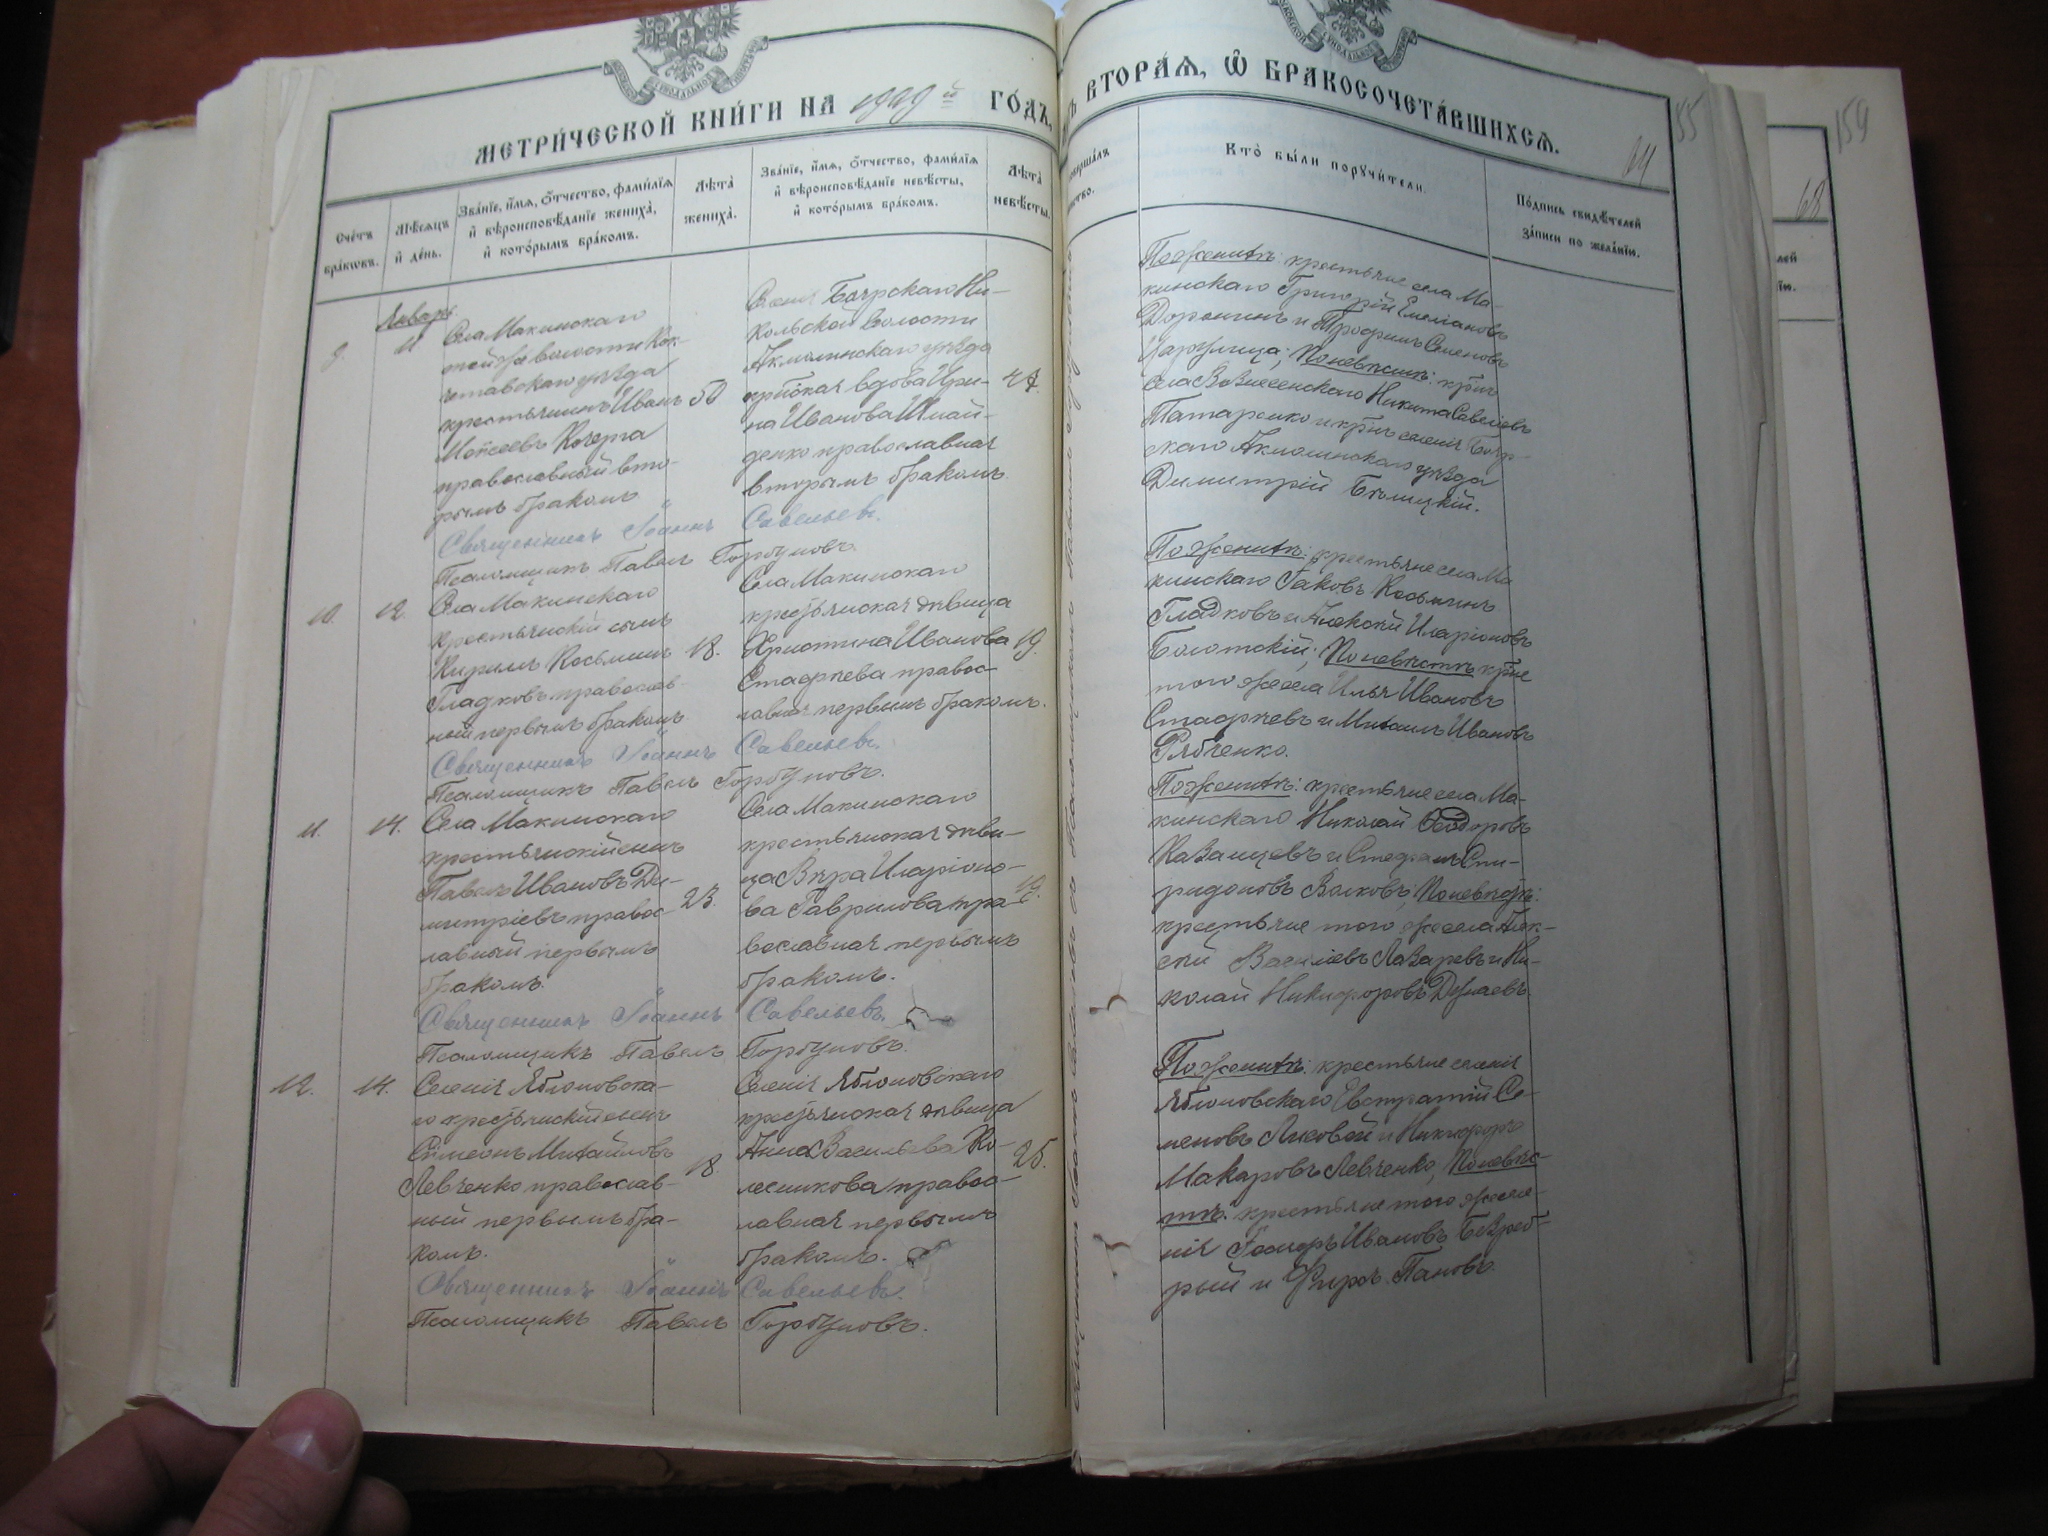 МЕТРИ́ЧЕСКОЙ КНИ́ГИ НА 1909й ГО́ДЪ,
Ъ ВТОРА́Я, Ѽ БРАКОСОЧЕТА́ВШИХСЯ.
64
55
159
68
Сче́тъ
бра́ковъ.
Мѣ́сяцъ
и де́нь.
Зва́нїе, и́мя, ѻ́тчество, фами́лїя
и вѣроисповѣ́данїе жениха̀,
и кото́рымъ бра́комъ.
Лѣта̀
жениха̀.
Зва́нїе, и́мя, ѻ́тчество, фами́лїя
и вѣроисповѣ́данїе невѣ́сты,
и кото́рымъ бра́комъ.
Лѣта̀
невѣ́сты.
Кто̀ бы́ли поручи́тели.
По́дпись свидѣ́телей
за́писи по жела́нїю.
Январь.
9.
11
Села Макинскаго
той же волости Кок-
четавскаго уѣзда
крестьянинъ Иванъ
Моѵсеевъ Кочерга
православный вто-
рымъ бракомъ
50
Селенія Боярскаго Ни-
кольской волости
Акмолинскаго уѣзда
вдова Ири-
на Иванова Шлай-
денко православная
вторымъ бракомъ.
Священникъ Іоаннъ Савельевъ.
Псаломщикъ Павелъ Горбуновъ.
По женихѣ: крестьяне села Ма-
кинскаго Григорій Емеліановъ
Доронинъ и Трофимъ Семеновъ
по невѣстѣ:
села Вознесенскаго Никита Савельевъ
Татаренко и селенія Бояр-
скаго Акмолинскаго уѣзда
Димитрій Бѣлицкій.
10.
12.
Села Макинскаго
крестьянскій сынъ
Кирилъ Косьминъ
Гладковъ православ-
ный первымъ бракомъ
18.
Села Макинскаго
крестьянская дѣвица
Христина Иванова
Стафѣева правос-
лавная первымъ бракомъ.
19.
Священникъ Іоаннъ Савельевъ.
Псаломщикъ Павелъ Горбуновъ.
По женихѣ: крестьяне села Ма-
кинскаго Іаковъ Косьминъ
Гладковъ и Алексѣй Иларіоновъ
Болотскій; по невѣстѣ
того же села Илья Ивановъ
Стафѣевъ и Михаилъ Ивановъ
Рябченко.
11.
14.
Села Макинскаго
крестьянскій сынъ
Павелъ Ивановъ Ди-
митріевъ правос-
лавный первымъ
бракомъ.
23.
Села Макинскаго
крестьянская дѣви-
ца Вѣра Иларіоно-
ва Гаврилова пра-
вославная первымъ
бракомъ.
Священникъ Іоаннъ Савельевъ.
Псаломщикъ Павелъ Горбуновъ.
По женихѣ: крестьяне села Ма-
кинскаго Николай Ѳеодоровъ
Казанцевъ и Стефанъ Спи-
ридоновъ Волковъ; по невѣстѣ:
крестьяне того же села Алек-
сѣй Василіевъ Лазаревъ и Ни-
колай Никифоровъ
12.
14.
Селенія Яблоновска-
го крестьянскій сынъ
Сѵмеонъ Михайловъ
Левченко православ-
ный первымъ бра-
комъ.
18.
Селенія Яблоновскаго
крестьянская дѣвица
Анна Васильева Ко-
лесникова правос-
лавная первымъ
бракомъ.
25.
Священникъ Іоаннъ Савельевъ.
Псаломщикъ Павелъ Горбуновъ.
По женихѣ: крестьяне селенія
Яблоновскаго Евстратій Се-
меновъ Лисовой и Никифоръ
Макаровъ Левченко, по невѣс-
тѣ: крестьяне того же селе-
нія Ивановъ
рый и Пановъ.